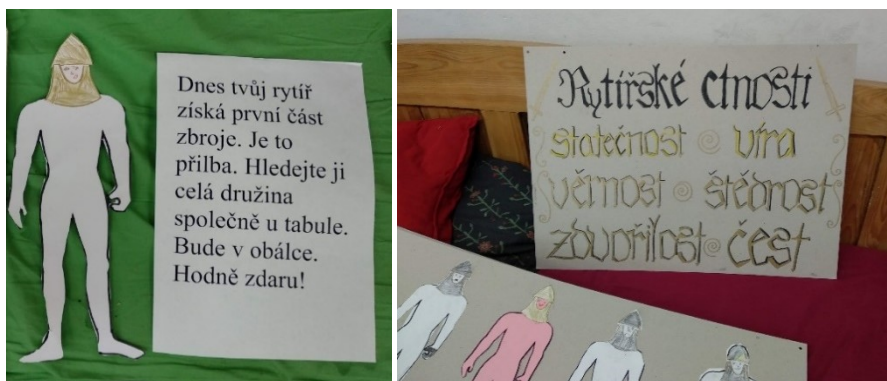 Dnes tvůj rytíř
získá první část
zbroje. Je to
přilba. Hledejte ji
celá družina
společně u tabule.
Bude v obálce.
Hodně zdaru!
Rytířské ctnosti
statečnost víra
věrnost štědrost
zdvořilost čest